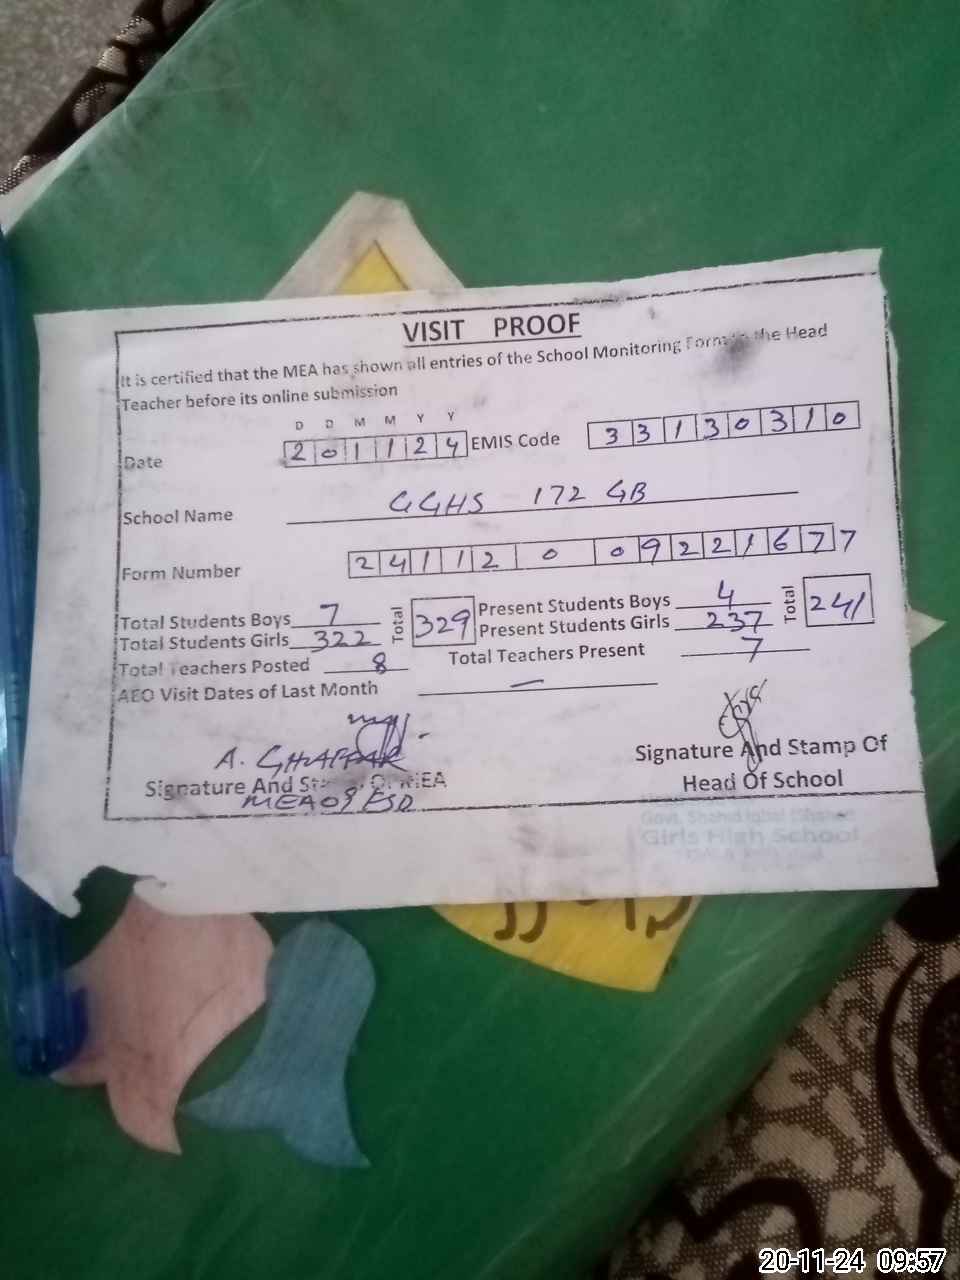 VISIT PROOF
It is certified that the MEA has shown all entries of the School Monitoring Form to the Head
Teacher before its online submission
D D M M Y Y
Date 2 0 1 1 2 4 EMIS Code 3 3 1 3 0 3 1 0
School Name GGHS 172 GB
Form Number 2 4 1 1 2 0 0 9 2 2 1 6 7 7
Total Students Boys 7 Total 329 Present Students Boys 4 Total 241
Total Students Girls 322 Present Students Girls 237
Total Teachers Posted 8 Total Teachers Present 7
AEO Visit Dates of Last Month —
A. GHAFFAR
Signature And Stamp Of MEA
MEA 09 FSD
Signature And Stamp Of
Head Of School
Govt. Shahid Iqbal
Girls High School
20-11-24 09:57